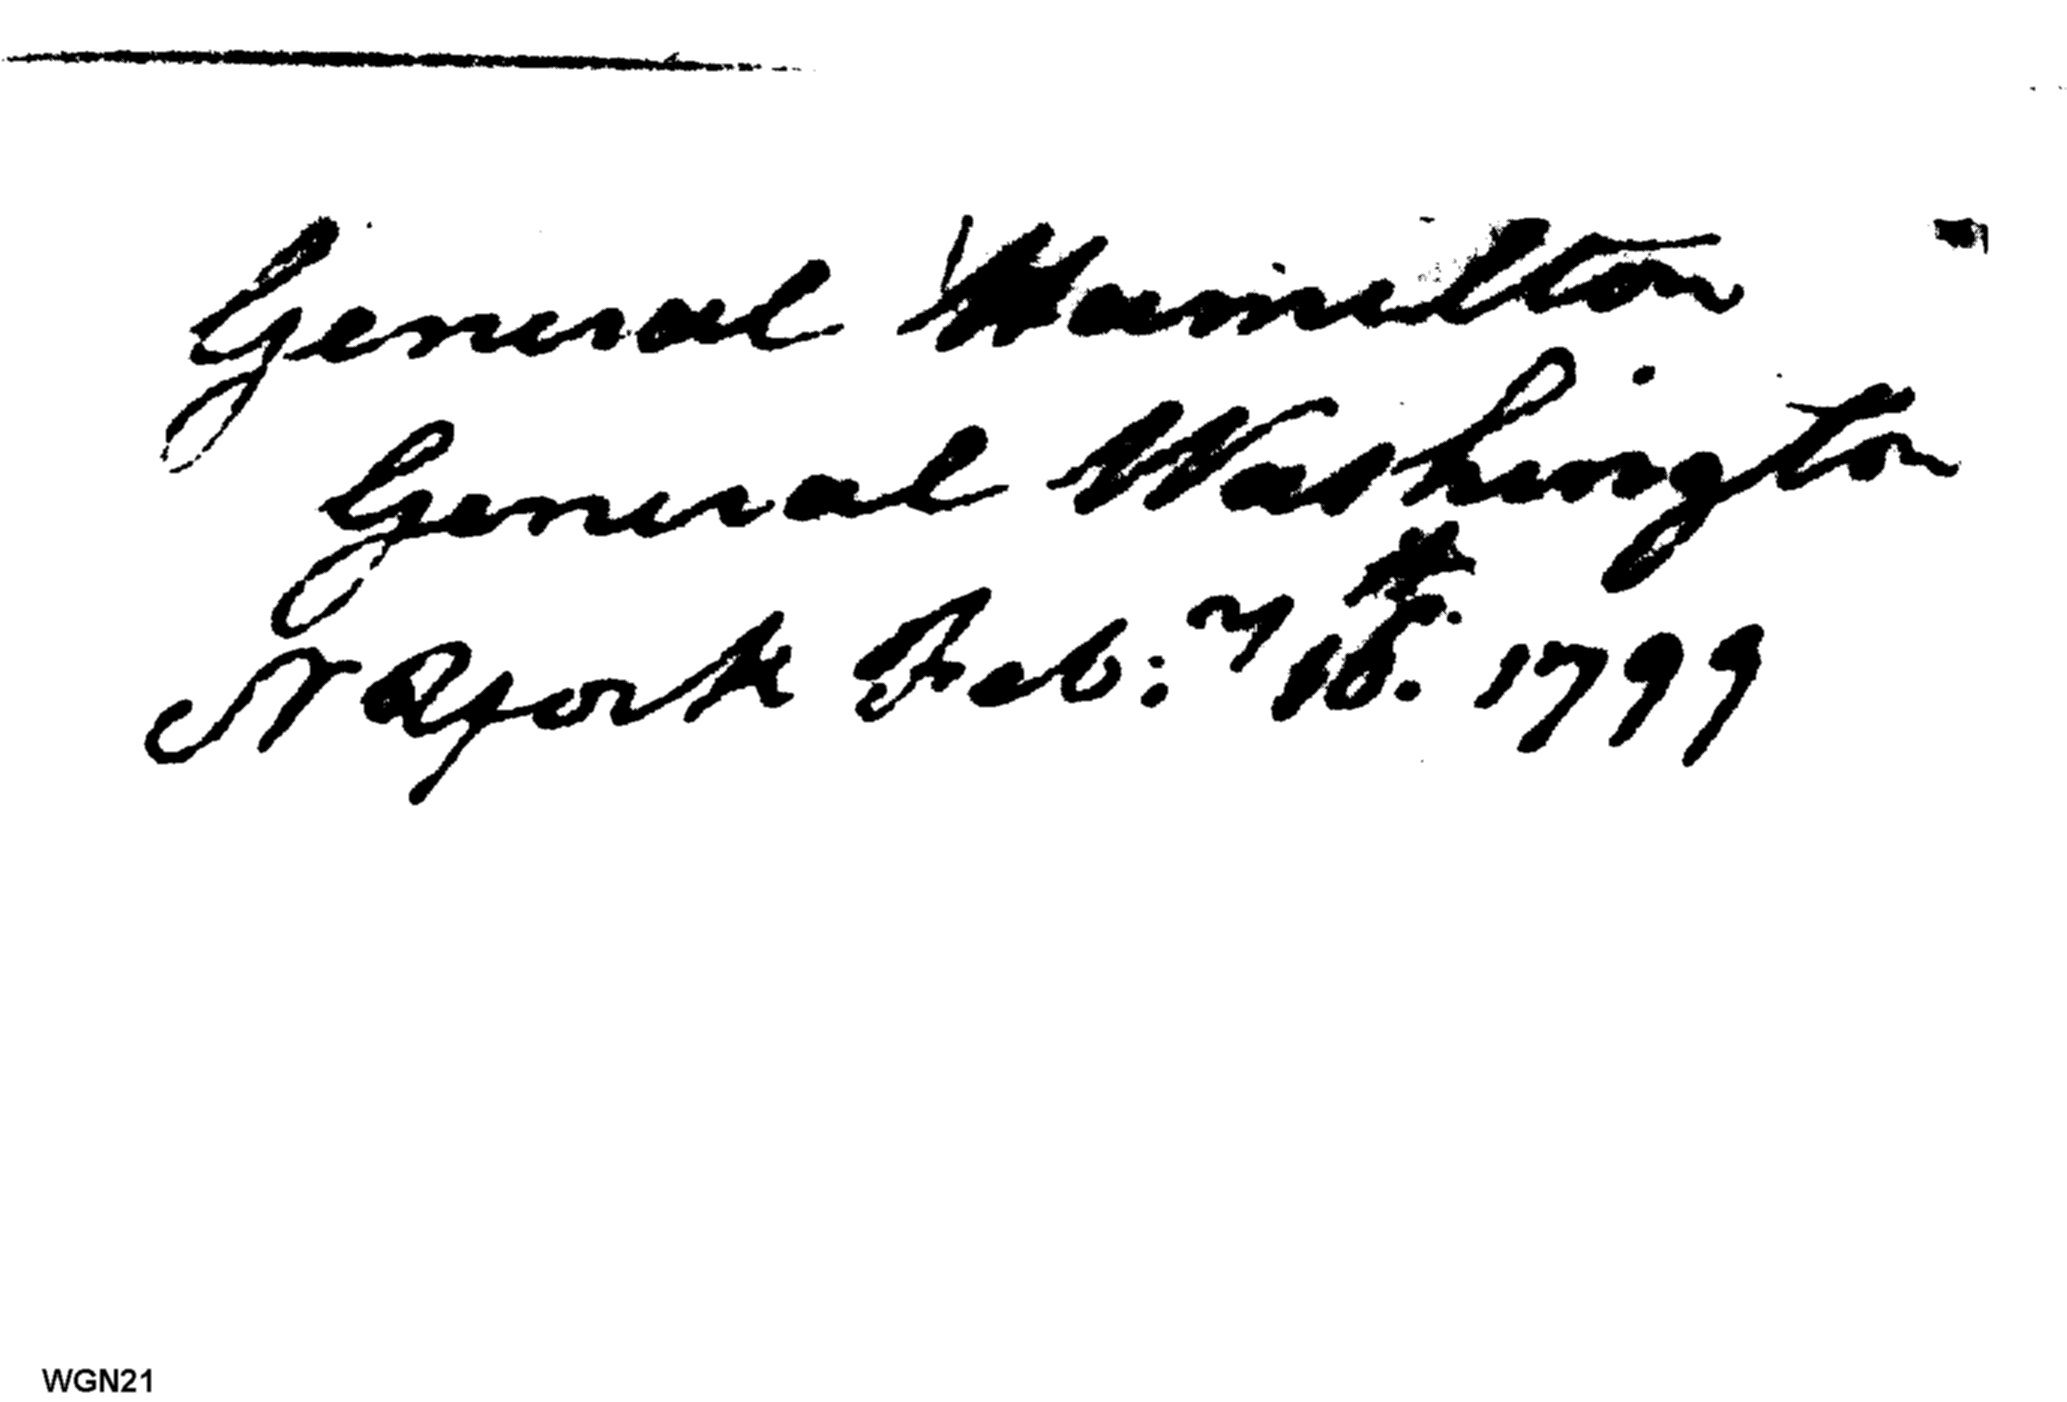 General Hamilton
General Washington
N York Feb:y 16th. 1799
WGN21